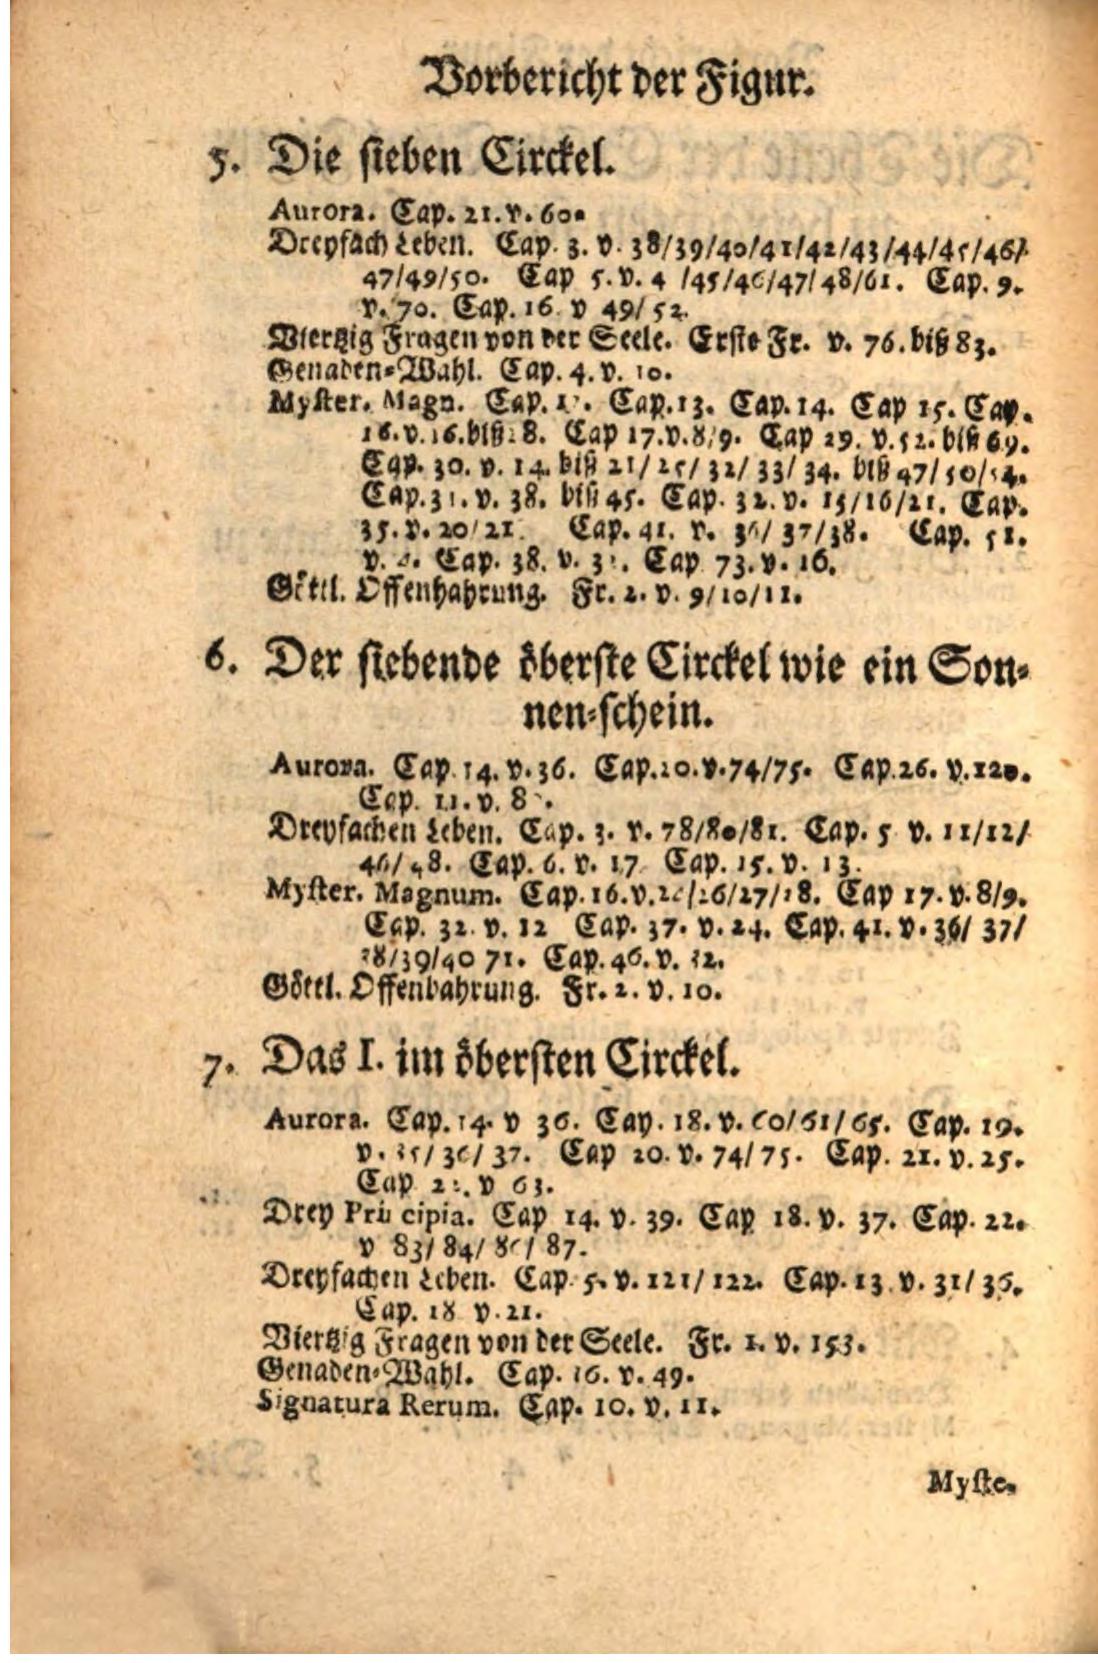 Vorbericht der Figur.
5. Die sieben Circkel.
Aurora. Cap. 21. v. 60.
Dreyfach Leben. Cap. 3. v. 38/39/40/41/42/43/44/45/46/
47/49/50. Cap 5. v. 4 /45/46/47/48/61. Cap. 9.
v. 70. Cap. 16. v 49/52.
Viertzig Fragen von der Seele. Erste Fr. v. 76. biß 83.
Genaden-Wahl. Cap. 4. v. 10.
Myster. Magn. Cap. Cap. 13. Cap. 14. Cap 15. Cap.
16. v. 16. biß 28. Cap 17. v. 8/9. Cap 29. v. 52. biß 69.
Cap. 30. v. 14. biß 21/25/32/33/34. biß 47/50/54.
Cap. 31. v. 38. biß 45. Cap. 32. v. 15/16/21. Cap.
35. v. 20/21. Cap. 41. v. 36/37/38. Cap. 51.
v. Cap. 38. v. Cap 73. v. 16.
Göttl. Offenbahrung. Fr. 2. v. 9/10/11.
6. Der siebende öberste Circkel wie ein Son-
nen-schein.
Aurora. Cap. 14. v. 36. Cap. 20. v. 74/75. Cap. 26. v. 120.
Cap. 11. v.
Dreyfachen Leben. Cap. 3. v. 78/80/81. Cap. 5 v. 11/12/
46/48. Cap. 6. v. 17. Cap. 15. v. 13.
Myster. Magnum. Cap. 16. v. /26/27/28. Cap 17. v. 8/9.
Cap. 32. v. 12 Cap. 37. v. 24. Cap. 41. v. 36/37/
38/39/40 71. Cap. 46. v. 32.
Göttl. Offenbahrung. Fr. 2. v. 10.
7. Das I. im öbersten Circkel.
Aurora. Cap. 14. v 36. Cap. 18. v. 60/61/65. Cap. 19.
v. 35/36/37. Cap 20. v. 74/75. Cap. 21. v. 25.
Cap v 63.
Drey Principia. Cap 14. v. 39. Cap 18. v. 37. Cap. 22.
v 83/84/86/87.
Dreyfachen Leben. Cap. 5. v. 121/122. Cap. 13. v. 31/36.
Cap. 18 v. 21.
Viertzig Fragen von der Seele. Fr. 1. v. 153.
Genaden-Wahl. Cap. 16. v. 49.
Signatura Rerum. Cap. 10. v. 11.
Myste.